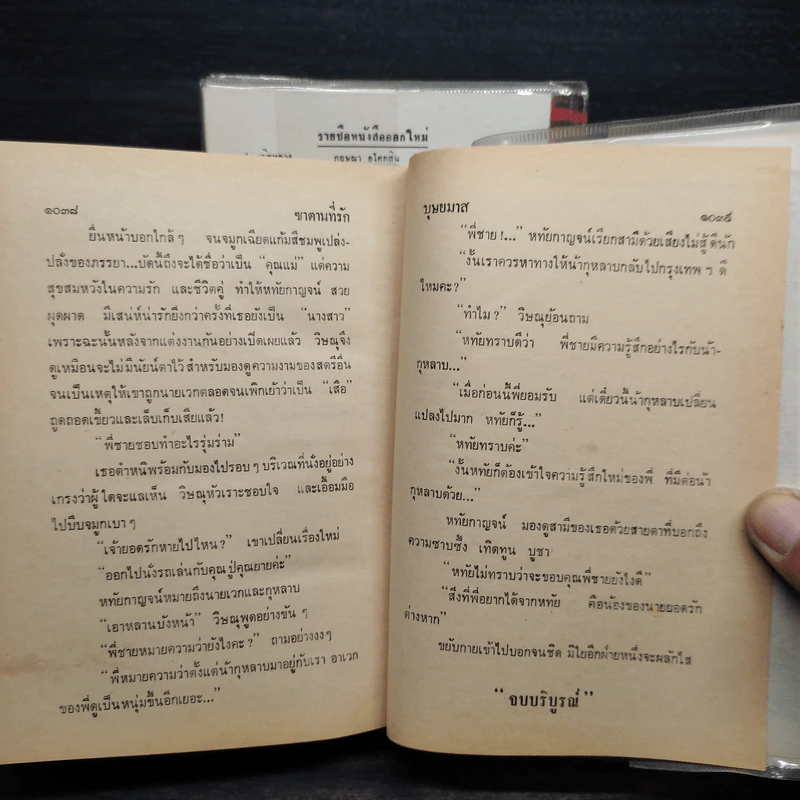 รายชื่อหนังสือออกใหม่
กฤษณา อโศกสิน
๑๐๓๘ ซาตานที่รัก
ยื่นหน้าบอกใกล้ ๆ จนจมูกเฉียดแก้มสีชมพูเปล่ง-
ปลั่งของภรรยา...บัดนี้ถึงจะได้ชื่อว่าเป็น “คุณแม่” แต่ความ
สุขสมหวังในความรัก และชีวิตคู่ ทำให้หทัยกาญจน์ สวย
ผุดผาด มีเสน่ห์น่ารักยิ่งกว่าครั้งที่เธอยังเป็น “นางสาว”
เพราะฉะนั้นหลังจากแต่งงานกันอย่างเปิดเผยแล้ว วิษณุจึง
ดูเหมือนจะไม่มีนัยน์ตาไว้ สำหรับมองดูความงามของสตรีอื่น
จนเป็นเหตุให้เขาถูกนายเวกตลอดจนเพิกเย้าว่าเป็น “เสือ”
ถูดถอดเขี้ยวและเล็บเก็บเสียแล้ว!
“พี่ชายชอบทำอะไรรุ่มร่าม”
เธอตำหนิพร้อมกับมองไปรอบ ๆ บริเวณที่นั่งอยู่อย่าง
เกรงว่าผู้ใดจะแลเห็น วิษณุหัวเราะชอบใจ และเอื้อมมือ
ไปบีบจมูกเบา ๆ
“เจ้ายอดรักหายไปไหน?” เขาเปลี่ยนเรื่องใหม่
“ออกไปนั่งรถเล่นกับคุณปู่คุณยายค่ะ”
หทัยกาญจน์หมายถึงนายเวกและกุหลาบ
“เอาหลานบังหน้า” วิษณุพูดอย่างขัน ๆ
“พี่ชายหมายความว่ายังไงคะ?” ถามอย่างงง ๆ
“พี่หมายความว่าตั้งแต่น้ากุหลาบมาอยู่กับเรา อาเวก
ของพี่ดูเป็นหนุ่มขึ้นอีกเยอะ...”
บุษยมาส ๑๐๓๙
“พี่ชาย !...” หทัยกาญจน์เรียกสามีด้วยเสียงไม่สู้ดีนัก
“งั้นเราควรหาทางให้น้ากุหลาบกลับไปกรุงเทพ ฯ ดี
ไหมคะ?”
“ทำไม?” วิษณุย้อนถาม
“หทัยทราบดีว่า พี่ชายมีความรู้สึกอย่างไรกับน้า-
กุหลาบ...”
“เมื่อก่อนนี้พี่ยอมรับ แต่เดี๋ยวนี้น้ากุหลาบเปลี่ยน
แปลงไปมาก หทัยก็รู้...”
“หทัยทราบค่ะ”
“งั้นหทัยก็ต้องเข้าใจความรู้สึกใหม่ของพี่ ที่มีต่อน้า
กุหลาบด้วย...”
หทัยกาญจน์ มองดูสามีของเธอด้วยสายตาที่บอกถึง
ความซาบซึ้ง เทิดทูน บูชา
“หทัยไม่ทราบว่าจะขอบคุณพี่ชายยังไงดี”
“สิ่งที่พี่อยากได้จากหทัย คือน้องของนายยอดรัก
ต่างหาก”
ขยับกายเข้าไปบอกจนชิด มิไยอีกฝ่ายหนึ่งจะผลักไส
“จบบริบูรณ์”